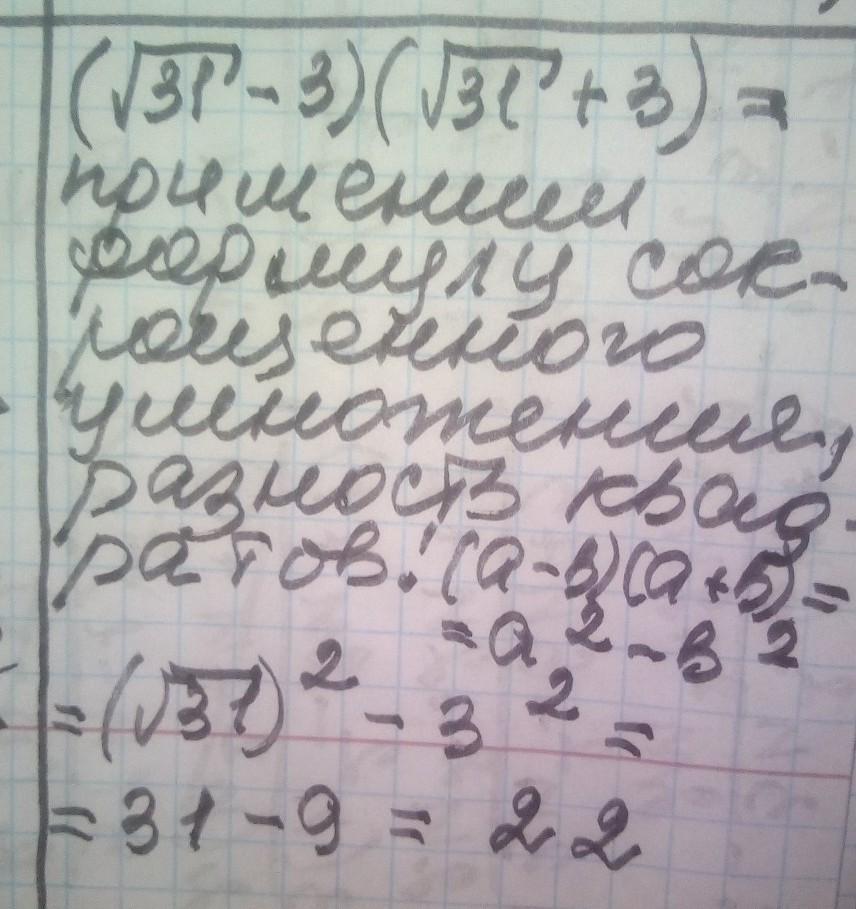 (√31 - 3)(√31 + 3) =
применим
формулу сок-
ращенного
умножения,
разность квад-
ратов! (а-в)(а+в)=
=а² - в²
=(√31)² - 3² =
= 31 - 9 = 22